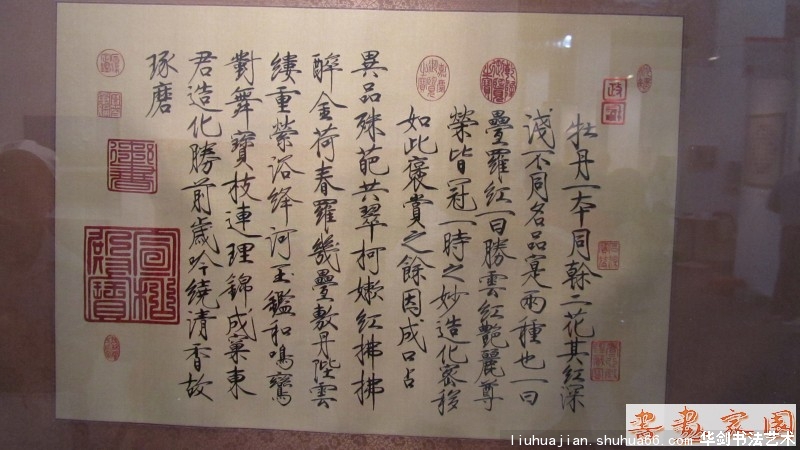 牡丹一本同幹二花其紅深
淺不同名品寔兩種也一曰
疊羅紅一曰勝雲紅艷麗尊
榮皆冠一時之妙造化密移
如此褒賞之餘因成口占
異品殊葩共翠柯嫩紅拂拂
醉金荷春羅幾疊敷丹陛雲
縷重縈浴絳河玉鑑和鳴鸞
對舞寶枝連理錦成窠東
君造化勝前歲吟繞清香故
琢磨
御書
政和
書畫家園
liuhuajian.shuhua66.com 华剑书法艺术